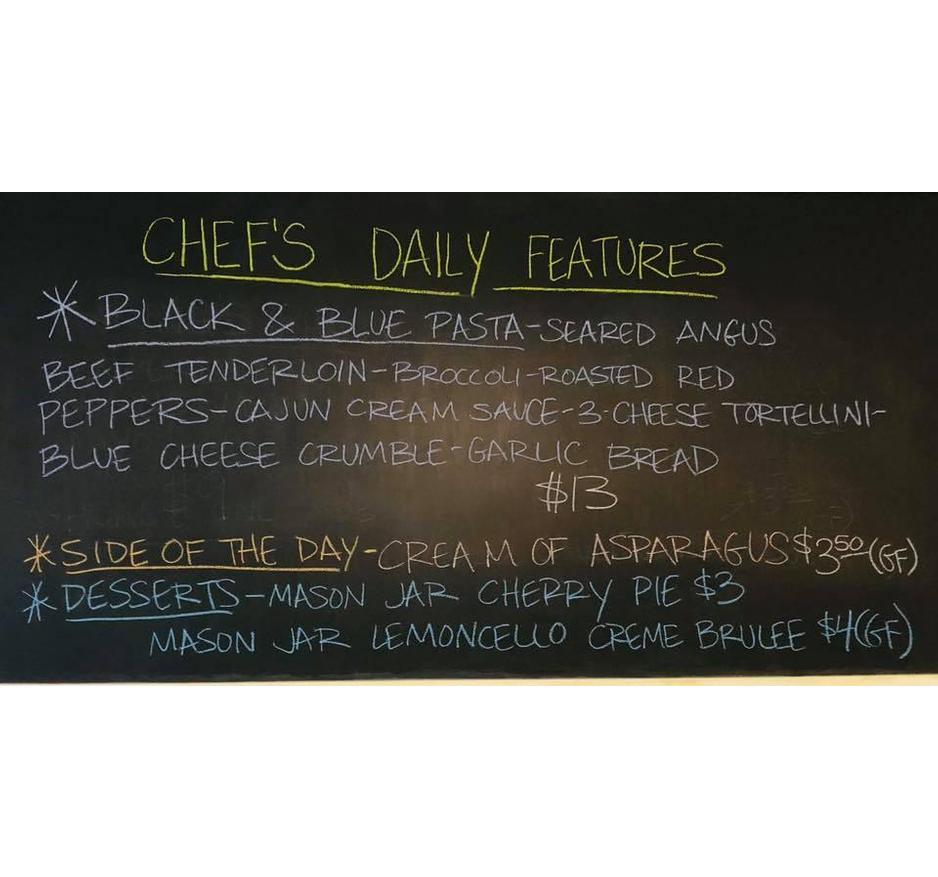 CHEF'S DAILY FEATURES
* BLACK & BLUE PASTA-SEARED ANGUS
BEEF TENDERLOIN-BROCCOLI-ROASTED RED
PEPPERS-CAJUN CREAM SAUCE-3-CHEESE TORTELLINI-
BLUE CHEESE CRUMBLE-GARLIC BREAD
$13
* SIDE OF THE DAY-CREAM OF ASPARAGUS $3.50 (GF)
* DESSERTS-MASON JAR CHERRY PIE $3
MASON JAR LEMONCELLO CREME BRULEE $4(GF)